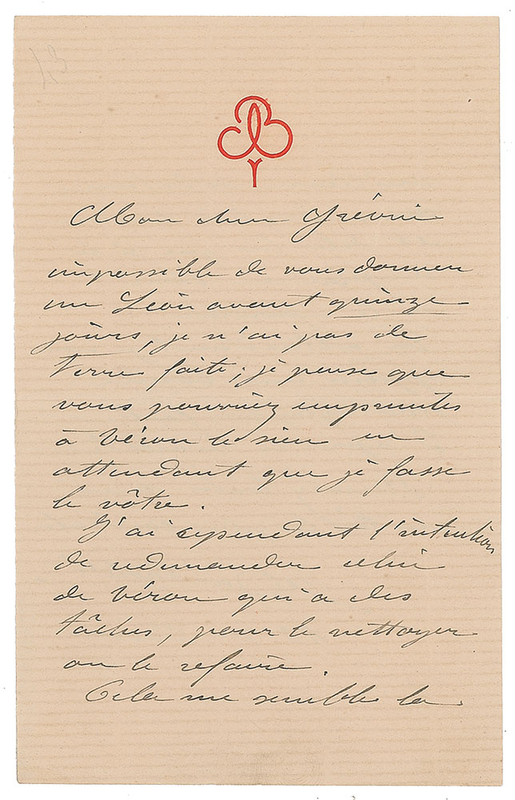 43
Mon cher Grévin
impossible de vous donner
un Léon avant quinze
jours, je n'ai pas de
terre faite ; je pense que
vous pourriez emprunter
à Véron le sien en
attendant que je fasse
le vôtre.
J'ai cependant l'intention
de redemander celui
de Véron qui a des
tâches, pour le nettoyer
ou le refaire.
Cela me semble la